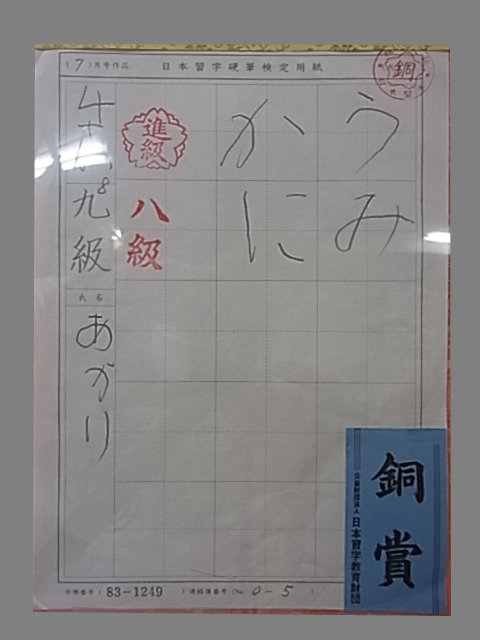 (7)月号作品
日本習字硬筆検定用紙
銅
うみ
かに
進級
八級
九級
氏名
あかり
銅賞
公益財団法人 日本習字教育財団
(83-1249
) 連絡簿番号 (No. 0-5 )